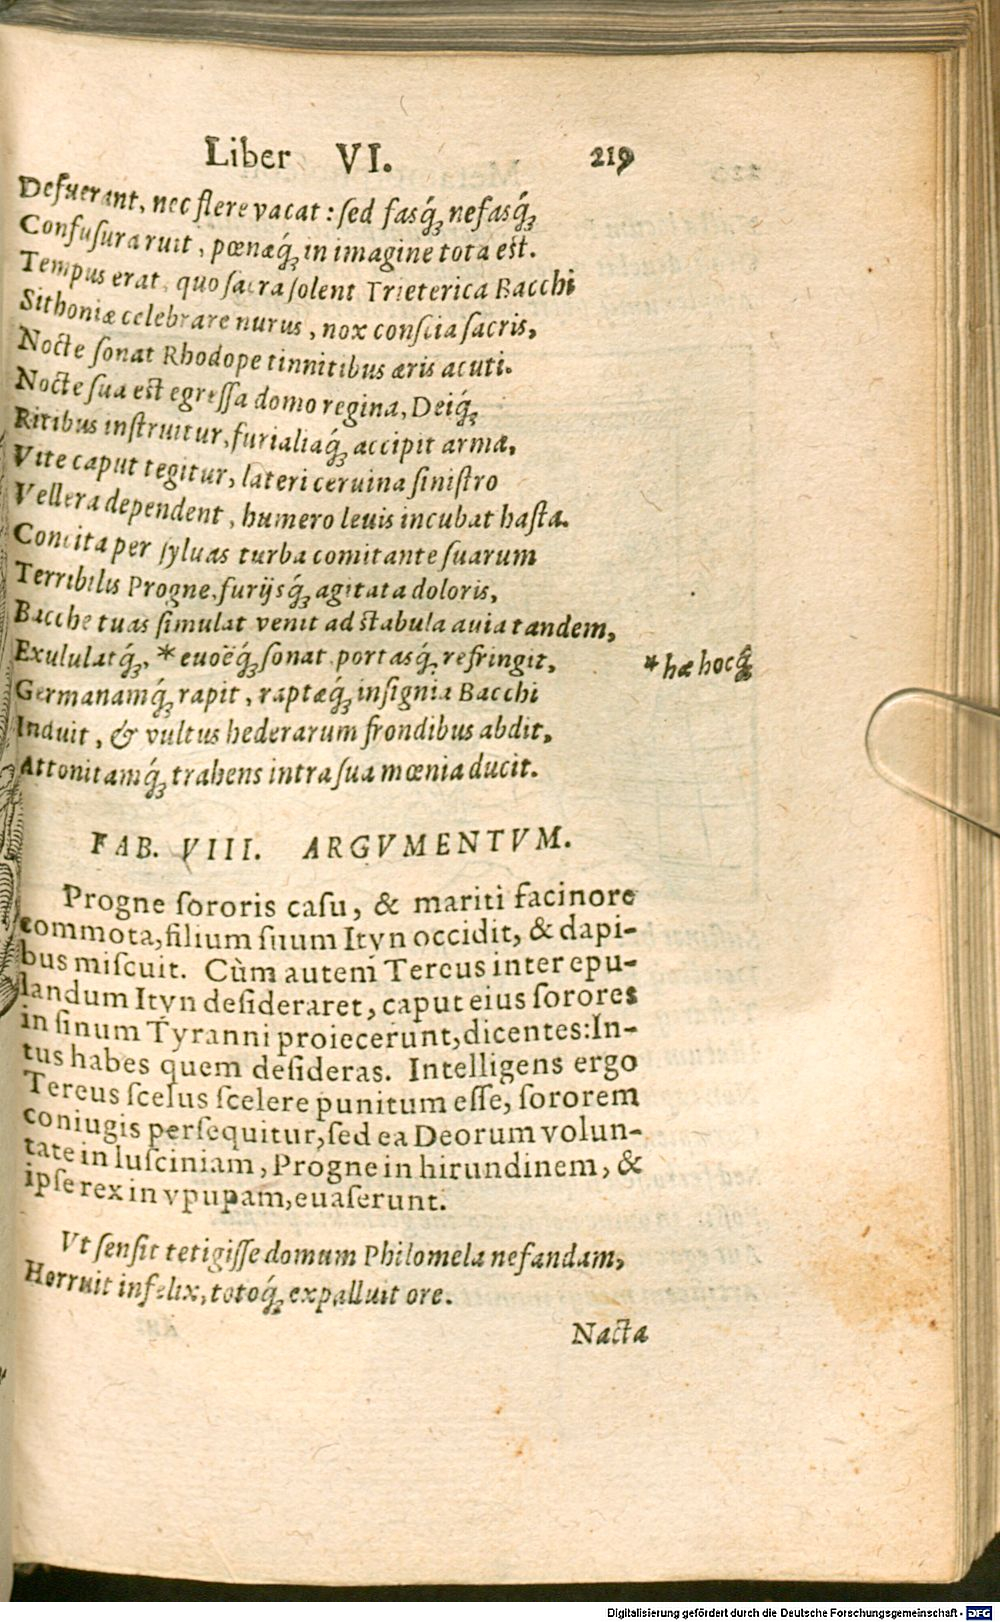 Liber VI. 219
Defuerant, nec flere vacat: sed fasq́ꝫ nefasq́ꝫ
Confuſura ruit, pœnæq́ꝫ in imagine tota est.
Tempus erat, quo ſacra ſolent Trieterica Bacchi
Sithoniæ celebrare nurus, nox conſcia ſacris,
Nocte ſonat Rhodope tinnitibus æris acuti.
Nocte ſua est egreſſa domo regina, Deiq́ꝫ
Ritibus inſtruitur, furialiaq́ꝫ accipit arma,
Vite caput tegitur, lateri ceruina ſiniſtro
Vellera dependent, humero leuis incubat haſta.
Concita per ſyluas turba comitante ſuarum
Terribilis Progne, furijsq́ꝫ agitata doloris,
Bacche tuas ſimulat venit ad stabula avia tandem,
Exululatq́ꝫ, * evoëq́ꝫ ſonat portasq́ꝫ refringit, * hæ hocq́ꝫ
Germanamq́ꝫ rapit, raptæq́ꝫ inſignia Bacchi
Induit, & vultus hederarum frondibus abdit,
Attonitamq́ꝫ trahens intra ſua mœnia ducit.
FAB. VIII. ARGVMENTVM.
Progne ſororis caſu, & mariti facinore
commota, filium ſuum Ityn occidit, & dapi-
bus miſcuit. Cùm autem Tereus inter epu-
landum Ityn deſideraret, caput eius ſorores
in ſinum Tyranni proiecerunt, dicentes: In-
tus habes quem deſideras. Intelligens ergo
Tereus ſcelus ſcelere punitum eſſe, ſororem
coniugis perſequitur, ſed ea Deorum volun-
tate in luſciniam, Progne in hirundinem, &
ipſe rex in vpupam, euaſerunt.
Vt ſenſit tetigiſſe domum Philomela nefandam,
Horruit infelix, totoq́ꝫ expalluit ore.
Nacta
Digitalisierung gefördert durch die Deutsche Forschungsgemeinschaft - DFG